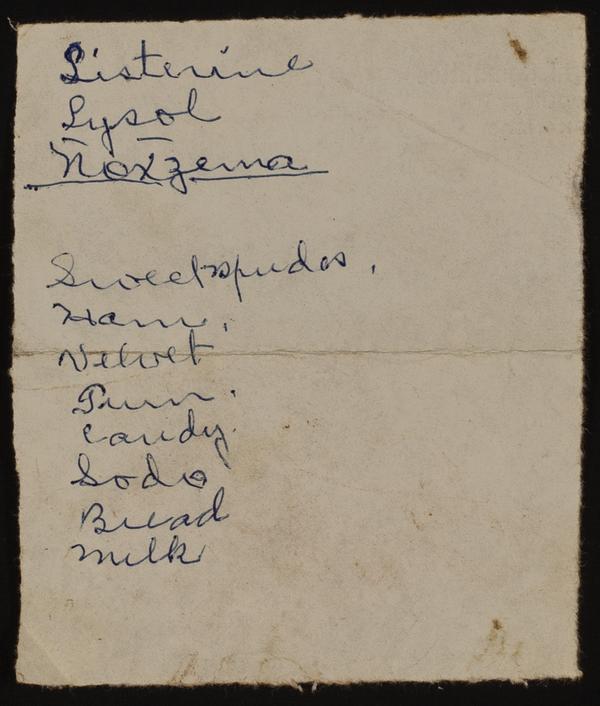 Listerine
Lysol
Noxzema
Sweetspudos,
Ham,
Velvet
Candy.
Soda
Bread
Milk